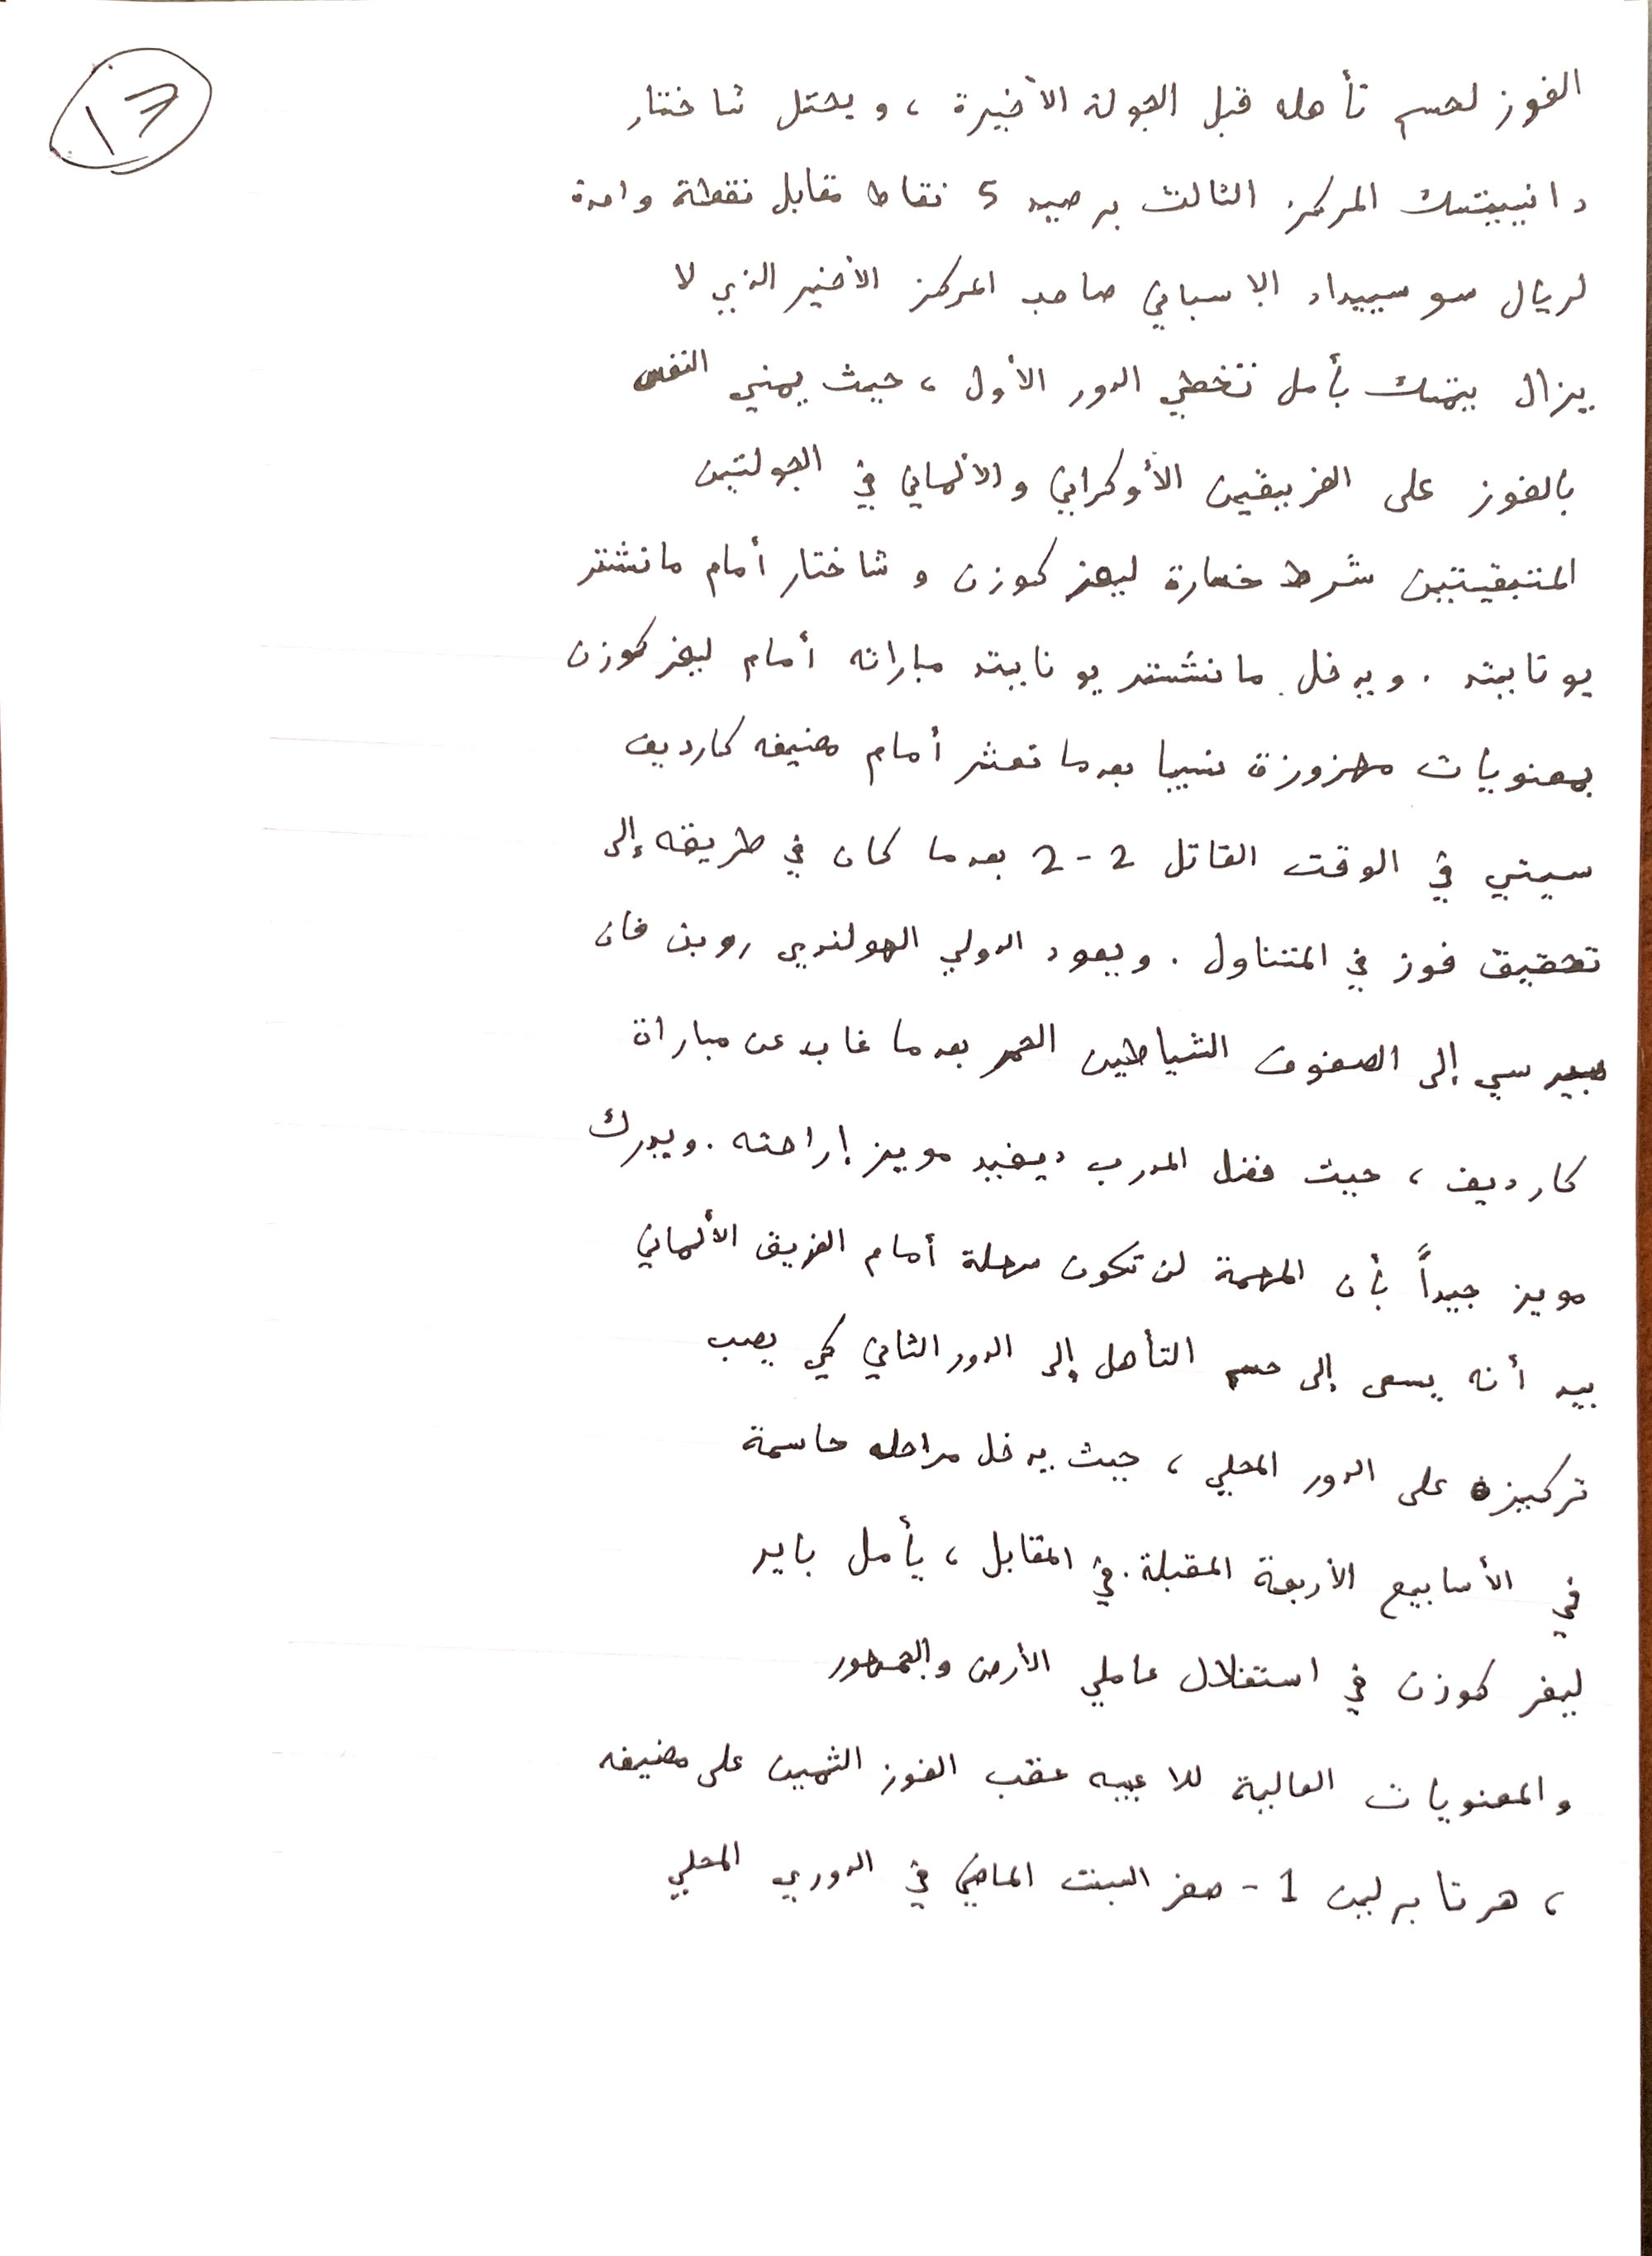 الفوز لحسم تأهله قبل الجولة الأخيرة ، ويحتل شاختار
دانييتسك المركز الثالث برصيد 5 نقاط مقابل نقطة واحدة
لريال سوسييداد الاسباني صاحب المركز الأخير الذي لا
يزال يتمسك بأمل تخطي الدور الأول ، حيث يمني النفس
بالفوز على الفريقين الأوكراني والألماني في الجولتين
المتبقيتين شرط خسارة ليفركوزن و شاختار أمام مانشستر
يونايتد . ويدخل مانشستر يونايتد مباراته أمام ليفركوزن
بمعنويات مهزوزة نسبيا بعدما تعثر أمام مضيفه كارديف
سيتي في الوقت القاتل 2 - 2 بعدما كان في طريقه إلى
تحقيق فوز في المتناول . ويعود الدولي الهولندي روبن فان
بيرسي إلى الصفوف الشياطين الحمر بعدما غاب عن مباراة
كارديف ، حيث فضل المدرب ديفيد مويز إراحته . ويدرك
مويز جيداً بأن المهمة لن تكون سهلة أمام الفريق الألماني
بيد أنه يسعى إلى حسم التأهل إلى الدور الثاني كي يصب
تركيزه على الدور المحلي ، حيث يدخل مراحله حاسمة
في الأسابيع الأربعة المقبلة . في المقابل ، يأمل باير
ليفركوزن في استغلال عاملي الأرض والجمهور
والمعنويات العالية للاعبيه عقب الفوز الثمين على مضيفه
، هرتا برلين 1 - صفر السبت الماضي في الدوري المحلي